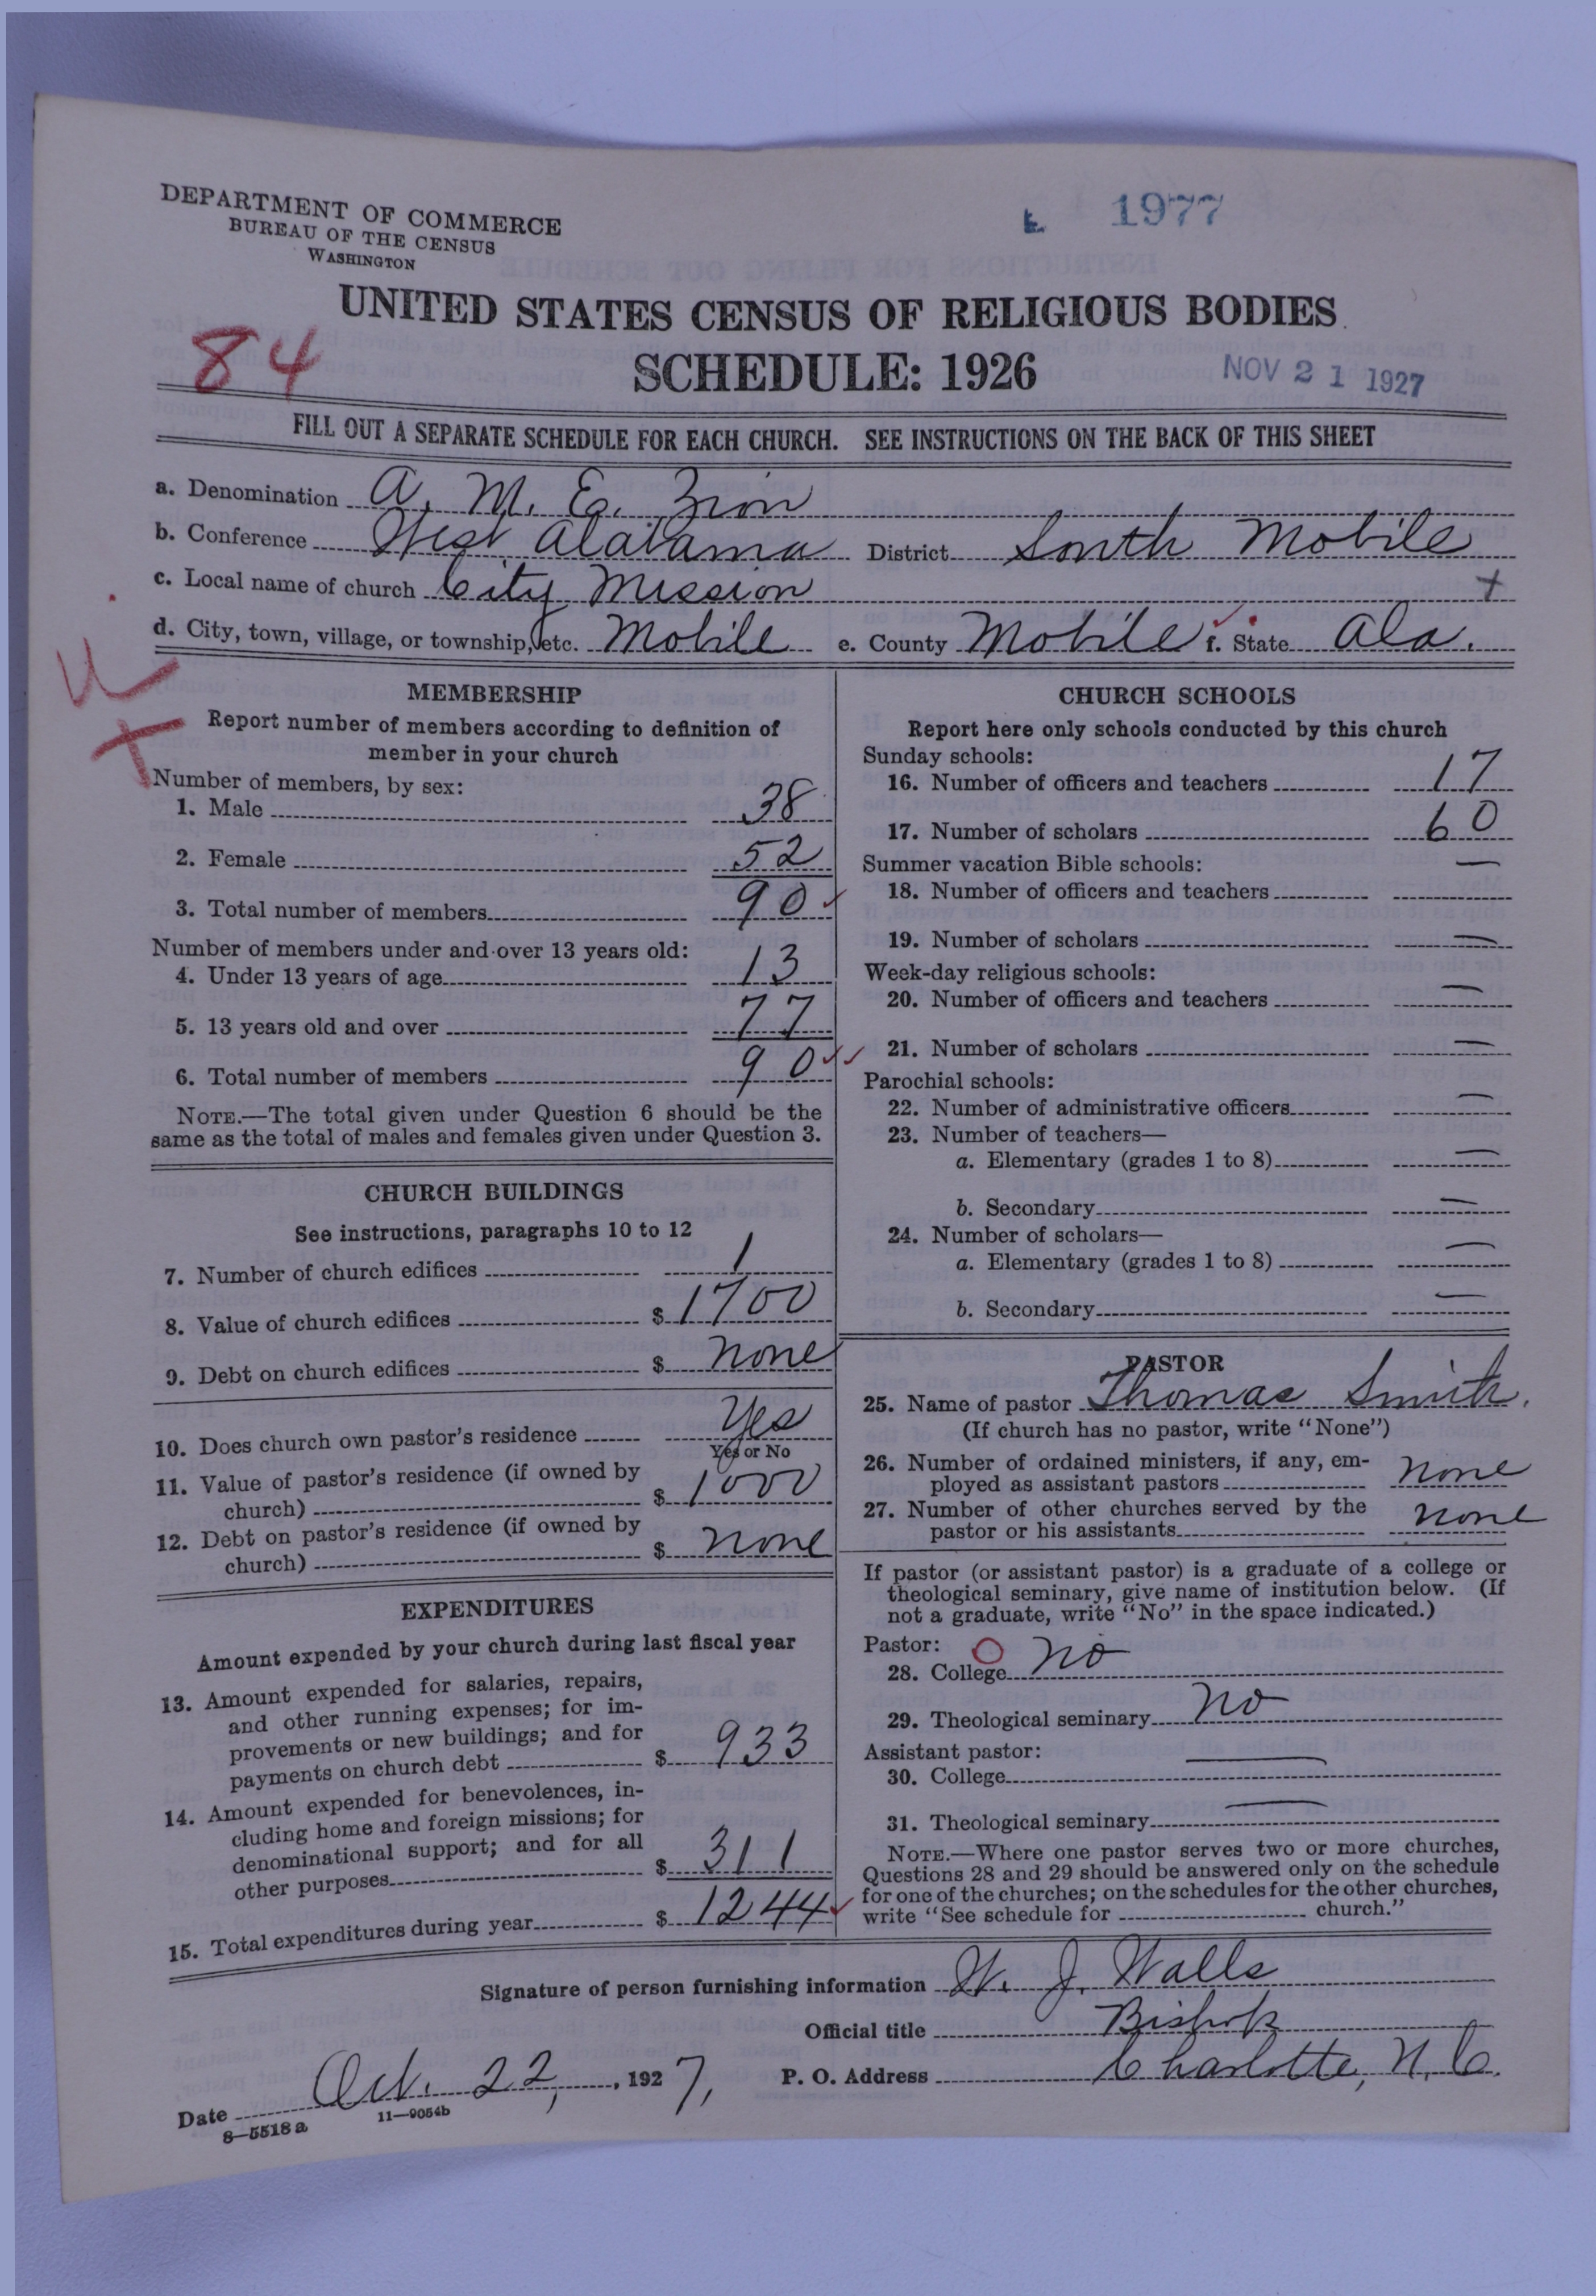 DEPARTMENT OF COMMERCE
BUREAU OF THE CENSUS
WASHINGTON
1977
UNITED STATES CENSUS OF RELIGIOUS BODIES
84
SCHEDULE: 1926
NOV 21 1927
FILL OUT A SEPARATE SCHEDULE FOR EACH CHURCH. SEE INSTRUCTIONS ON THE BACK OF THIS SHEET
a. Denomination A. M. E. Zion
b. Conference West Alabama District South Mobile
c. Local name of church City Mission
d. City, town, village, or township, etc. Mobile e. County Mobile f. State Ala.
MEMBERSHIP
Report number of members according to definition of
member in your church
Number of members, by sex:
1. Male 38
2. Female 52
3. Total number of members 90
Number of members under and over 13 years old:
4. Under 13 years of age 13
5. 13 years old and over 77
6. Total number of members 90
NOTE.—The total given under Question 6 should be the
same as the total of males and females given under Question 3.
CHURCH BUILDINGS
See instructions, paragraphs 10 to 12
7. Number of church edifices 1
8. Value of church edifices $ 1700
9. Debt on church edifices $ none
10. Does church own pastor's residence Yes
Yes or No
11. Value of pastor's residence (if owned by
church) $ 1000
12. Debt on pastor's residence (if owned by
church) $ none
EXPENDITURES
Amount expended by your church during last fiscal year
13. Amount expended for salaries, repairs,
and other running expenses; for im-
provements or new buildings; and for
payments on church debt $ 933
14. Amount expended for benevolences, in-
cluding home and foreign missions; for
denominational support; and for all
other purposes $ 311
15. Total expenditures during year $ 1244
CHURCH SCHOOLS
Report here only schools conducted by this church
Sunday schools:
16. Number of officers and teachers 17
17. Number of scholars 60
Summer vacation Bible schools: —
18. Number of officers and teachers
19. Number of scholars —
Week-day religious schools:
20. Number of officers and teachers —
21. Number of scholars —
Parochial schools:
22. Number of administrative officers —
23. Number of teachers—
a. Elementary (grades 1 to 8) —
b. Secondary —
24. Number of scholars—
a. Elementary (grades 1 to 8) —
b. Secondary —
PASTOR
25. Name of pastor Thomas Smith.
(If church has no pastor, write "None")
26. Number of ordained ministers, if any, em-
ployed as assistant pastors none
27. Number of other churches served by the
pastor or his assistants none
If pastor (or assistant pastor) is a graduate of a college or
theological seminary, give name of institution below. (If
not a graduate, write "No" in the space indicated.)
Pastor:
28. College No
29. Theological seminary No
Assistant pastor:
30. College —
31. Theological seminary —
NOTE.—Where one pastor serves two or more churches,
Questions 28 and 29 should be answered only on the schedule
for one of the churches; on the schedules for the other churches,
write "See schedule for church."
Signature of person furnishing information W. J. Walls
Official title Bishop
Date Oct. 22, 1927, P. O. Address Charlotte, N. C.
8—5518 a 11—9054b